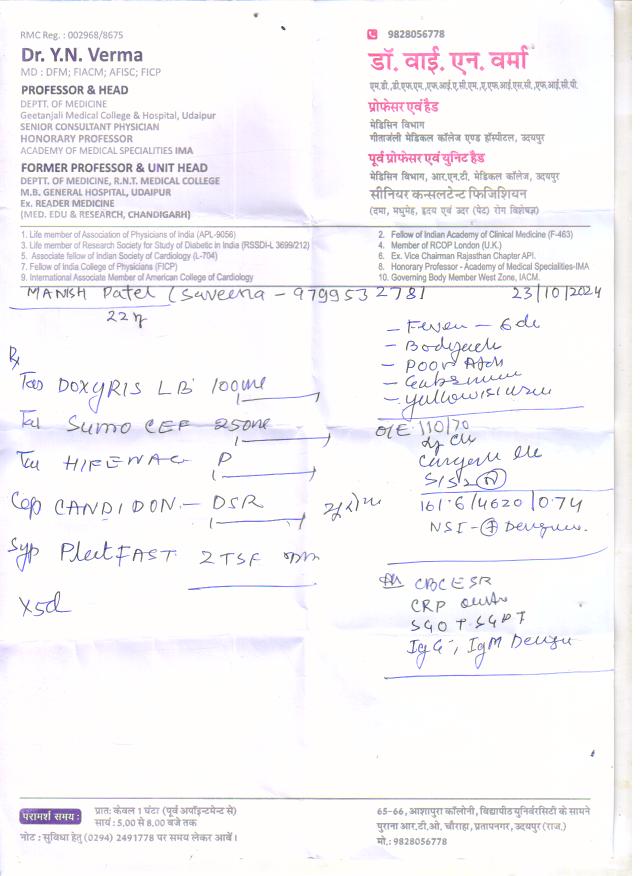 RMC Reg. : 002968/8675
Dr. Y.N. Verma
MD : DFM; FIACM; AFISC; FICP
PROFESSOR & HEAD
DEPTT. OF MEDICINE
Geetanjali Medical College & Hospital, Udaipur
SENIOR CONSULTANT PHYSICIAN
HONORARY PROFESSOR
ACADEMY OF MEDICAL SPECIALITIES IMA
FORMER PROFESSOR & UNIT HEAD
DEPTT. OF MEDICINE, R.N.T. MEDICAL COLLEGE
M.B. GENERAL HOSPITAL, UDAIPUR
Ex. READER MEDICINE
(MED. EDU & RESEARCH, CHANDIGARH)
9828056778
डॉ. वाई. एन. वर्मा
एम.डी.,डी.एफ.एम.,एफ.आई.ए.सी.एम.,ए.एफ.आई.एस.सी.,एफ.आई.सी.पी.
प्रोफेसर एवं हैड
मेडिसिन विभाग
गीतांजली मेडिकल कॉलेज एण्ड हॉस्पीटल, उदयपुर
पूर्व प्रोफेसर एवं युनिट हैड
मेडिसिन विभाग, आर.एन.टी. मेडिकल कॉलेज, उदयपुर
सीनियर कन्सलटेन्ट फिजिशियन
(दमा, मधुमेह, हृदय एवं उदर (पेट) रोग विशेषज्ञ)
1. Life member of Association of Physicians of India (APL-9056)
3. Life member of Research Society for Study of Diabetic in India (RSSDI-L 3699/212)
5. Associate fellow of Indian Society of Cardiology (L-704)
7. Fellow of India College of Physicians (FICP)
9. International Associate Member of American College of Cardiology
2. Fellow of Indian Academy of Clinical Medicine (F-463)
4. Member of RCOP London (U.K.)
6. Ex. Vice Chairman Rajasthan Chapter API.
8. Honorary Professor - Academy of Medical Specialities-IMA
10. Governing Body Member West Zone, IACM.
MANISH Patel (Saveena - 9799532781 23/10/2024
22 y
- Fever - 6d
- Bodyache
- Poor
O/E 110/70
S1S2 N
16.6/4620/0.74
NS1 - +
Rx
Tab DOXYRIS LB 100
Tab SUMO CEF 250
Tab HIFENAC P
Cap CANDIDON - DSR
Syp PlletFAST 2TSF
X5d
CBC ESR
CRP
SGOT SGPT
IgG, IgM Dengue
परामर्श समय:
प्रातः केवल 1 घंटा (पूर्व अपॉइन्टमेन्ट से)
सायं : 5.00 से 8.00 बजे तक
नोट : सुविधा हेतु (0294) 2491778 पर समय लेकर आवें।
65-66, आशापुरा कॉलोनी, विद्यापीठ युनिर्वरसिटी के सामने
पुराना आर.टी.ओ. चौराहा, प्रतापनगर, उदयपुर (राज.)
मो.: 9828056778